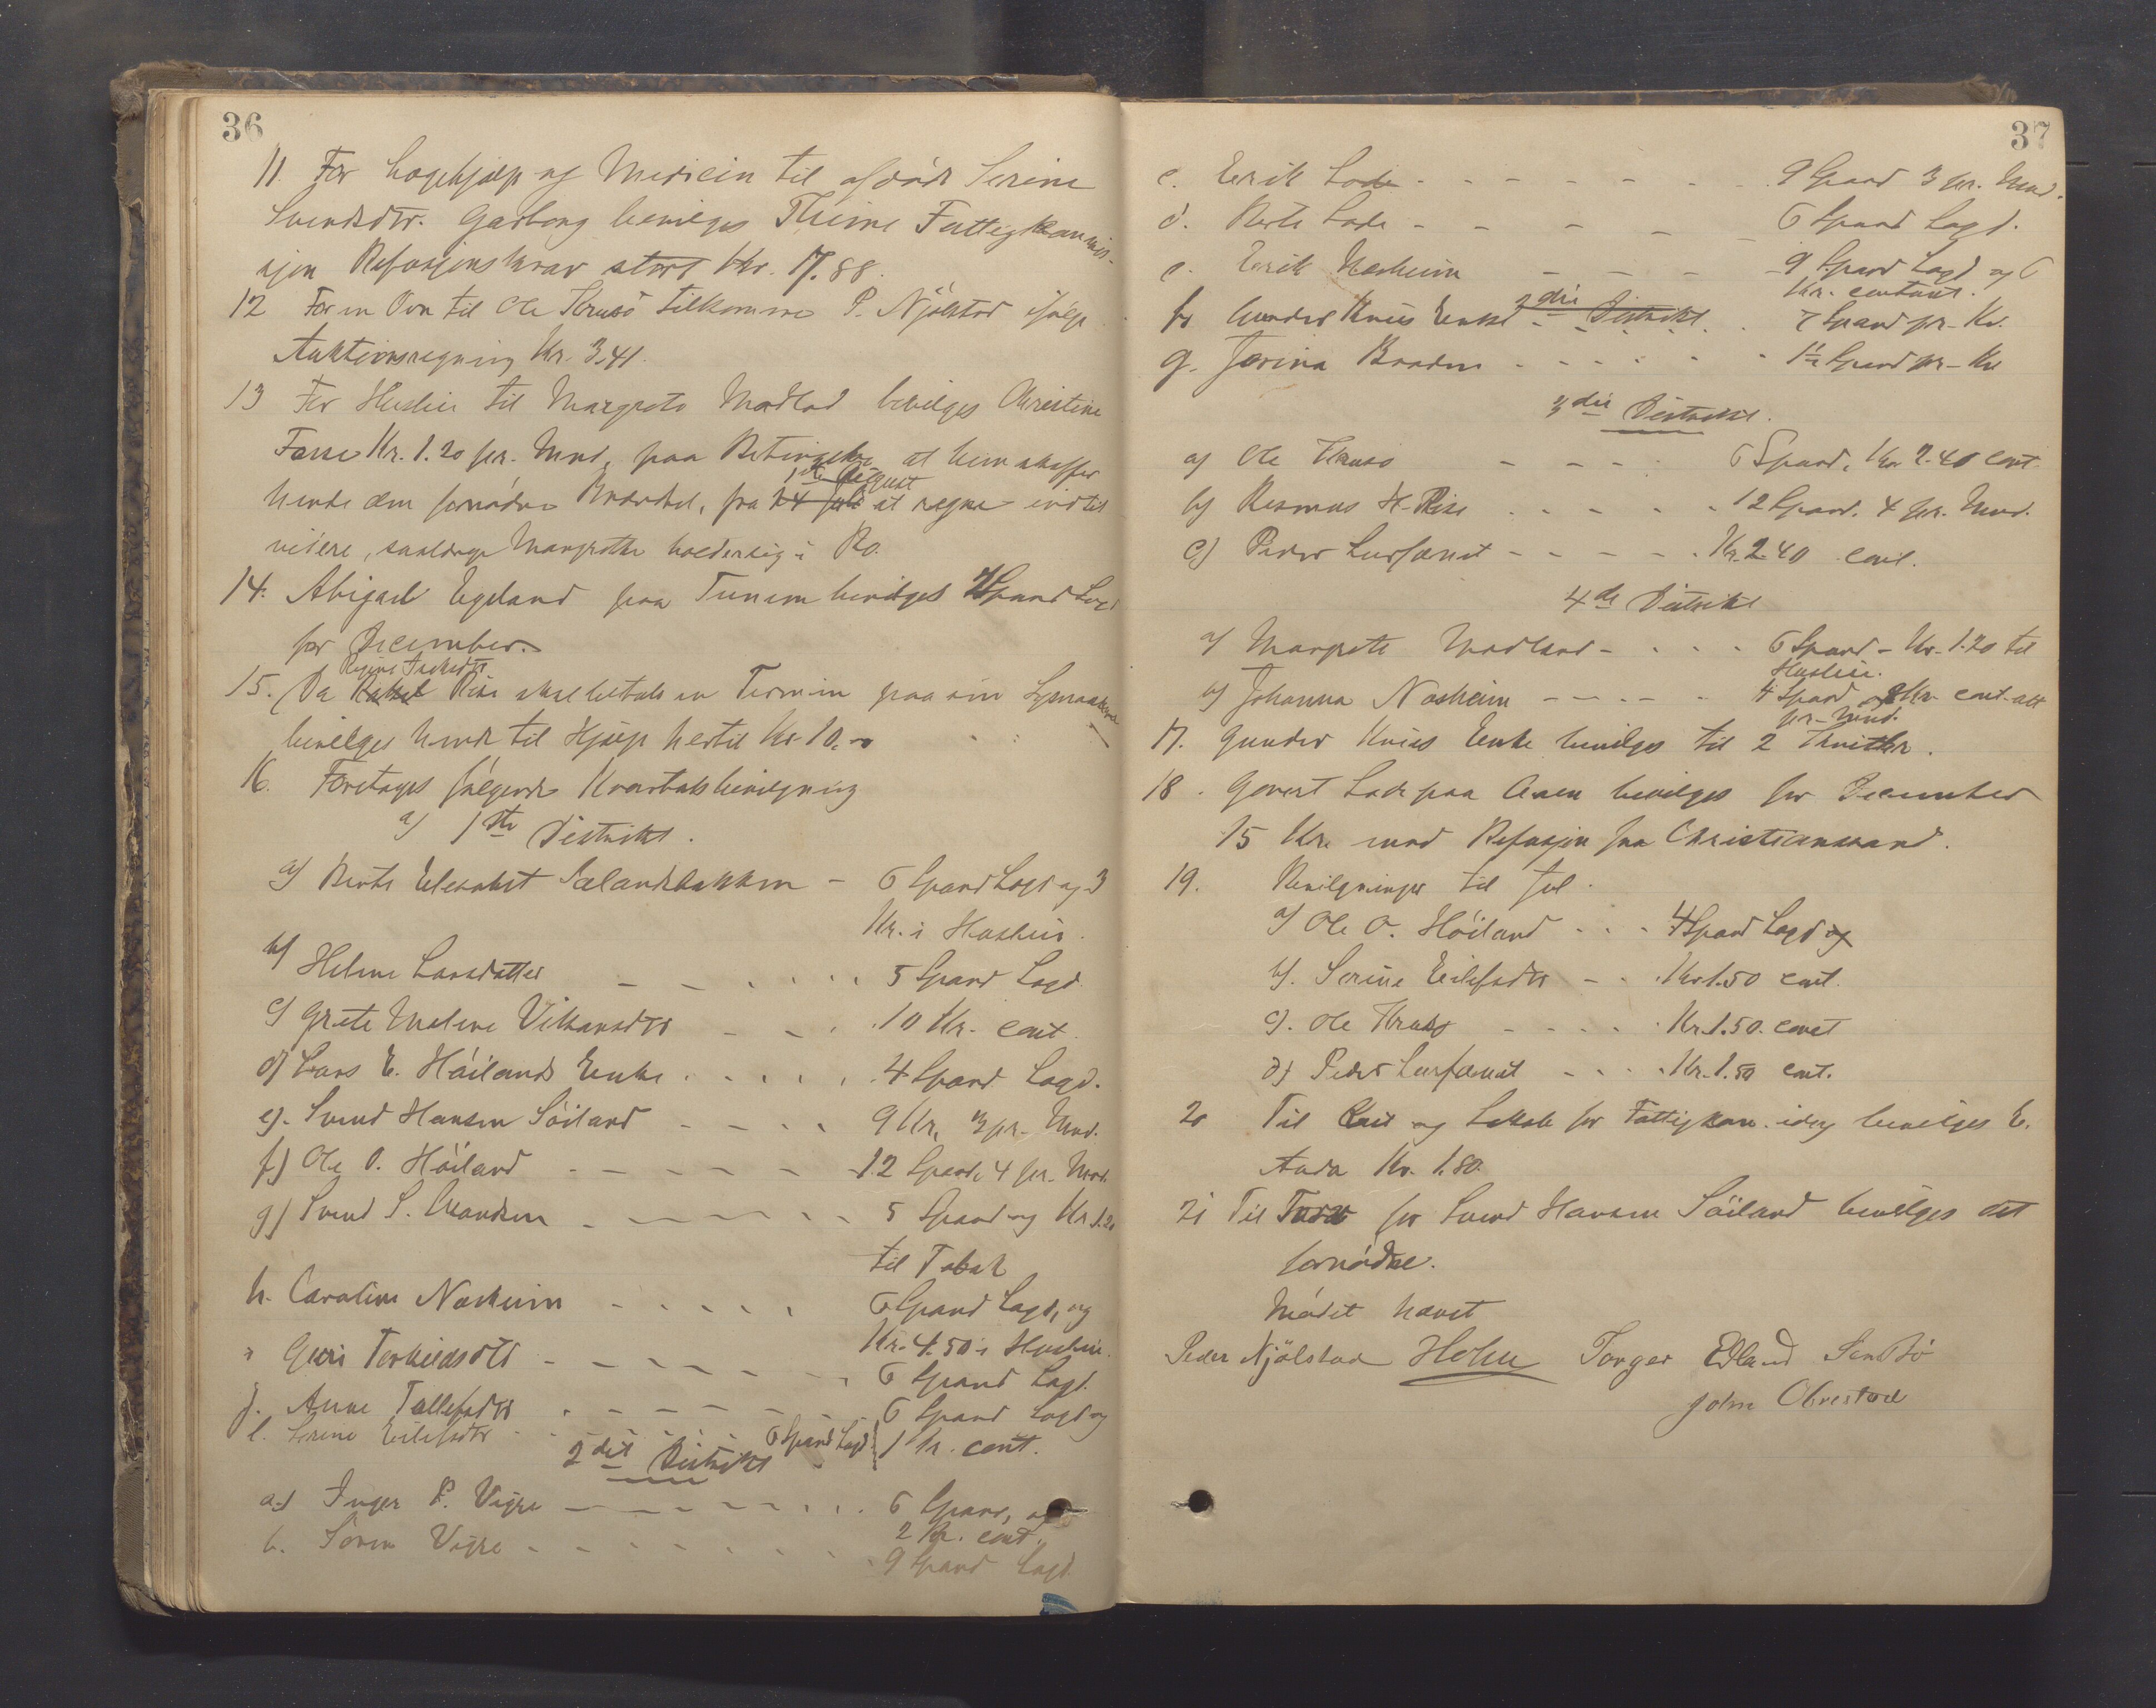 36
11. For Lægehjælp og Medicin til afdøde Serine
Svendsdtr. Garborg bevilges Thime Fattigkommis-
sjon Refusjonskrav stort Kr. 17.88.
12 For en Ovn til Ole Kruse tilkommer P. Njølstad ifølge
Auktionsregning Kr. 3.41.
13 For Husleie til Margrete Modland bevilges Christine
Kr. 1.20 pr. Mnd, paa Betingelse at hun skaffer
1ste August
hende den fornødne Brændsel, fra 14 Juli at regne indtil
videre, saalænge Margrethe holder sig i Ro.
14. Abigael Egeland paa Tunem bevilges 4 Spand Lagd
for December.
15. Da Rise skal betale en Termin paa sin
bevilges hende til Hjælp hertil Kr. 10.-
16. Foretages følgende Kvartalsbevilgning
a) 1ste Distrikt.
a) Berte Elesabet Sælandsbakken - 6 Spand Lagd og 3
Kr. i Husleie.
b) Helene Larsdatter - - 5 Spand Lagd
c) Grete Malene - - 10 Kr. cont.
d) Lars E. Høilands Enke . . . . 4 Spand Lagd.
e). Svend Hansen Söiland - - - - 9 Kr, 3 pr. Mnd.
f) Ole O. Høiland - - - - - 12 Spand, 4 pr. Mnd.
g) Svend S. - - - - - 5 Spand og Kr 1.20
til Tobak
h. Caroline Næsheim - . . . . 6 Spand Lagd, og
Kr. 4.50 i Husleie.
Guri Torkildsdtr - - - - - 6 Spand Lagd.
j. Anne Tollefsdtr . - - - - - 6 Spand Lagd og
1 Kr. cont.
l. Serine Eilefsdtr - . . . 6 Spand Lagd
2det Distrikt
a.) Inger P. Vigre - - - - - 6 Spand, og
2 Kr. cont.
b. Sören Vigre - - - - - 9 Spand Lagd
37
c. Eerik Lode - - - - - - 9 Spand 3 pr. Mnd.
d. Berte Lode - - - - - 6 Spand Lagd.
e. Eerik Næsheim - - - 9 Spand Lagd og 6
Kr. contant.
3die Distrikt
f. Gunder Kviss Enke - 7 Spand pr. Kv.
g. Jorina Braden - - - - - 1½ Spand pr. Kv
3die Distrikt.
a) Ole Kruse - - - - 6 Spand, Kr 2.40 cont.
b) Rasmus H. Rise . . - . . 12 Spand. 4 pr. Mnd.
c) Peder - - - - Kr. 2.40 cont.
4de Distrikt
a) Margrete Modland - . . . 6 Spand - Kr. 1.20 til
Husleie.
b) Johanna Næsheim - - - - . 4 Spand og 8 Kr. cont. alt
pr. Mnd.
17. Gunder Kviss Enke bevilges til 2
18. Govert Lode paa bevilges for December
15 Kr. mod Refusjon fra Christianssand.
19. Bevilgninger til Jul.
a) Ole O. Höiland . . . 4 Spand Lagd og
b). Serine Eilefsdtr - - . Kr 1.50 cont.
c). Ole Kruse - - . . . Kr. 1.50. cont
d) Peder - . . . Kr. 1.50 cont.
20 Til og Lokale for Fattigkom. idag bevilges E.
Auda Kr. 1.80.
21 Til for Svend Hansen Söiland bevilges det
fornødne.
Mødet hævet
Peder Njölstad Holm Torger Edland
John Obrestad